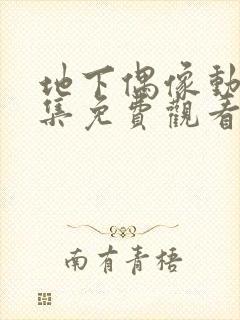 地下偶像動
集免費觀看
南有青梧